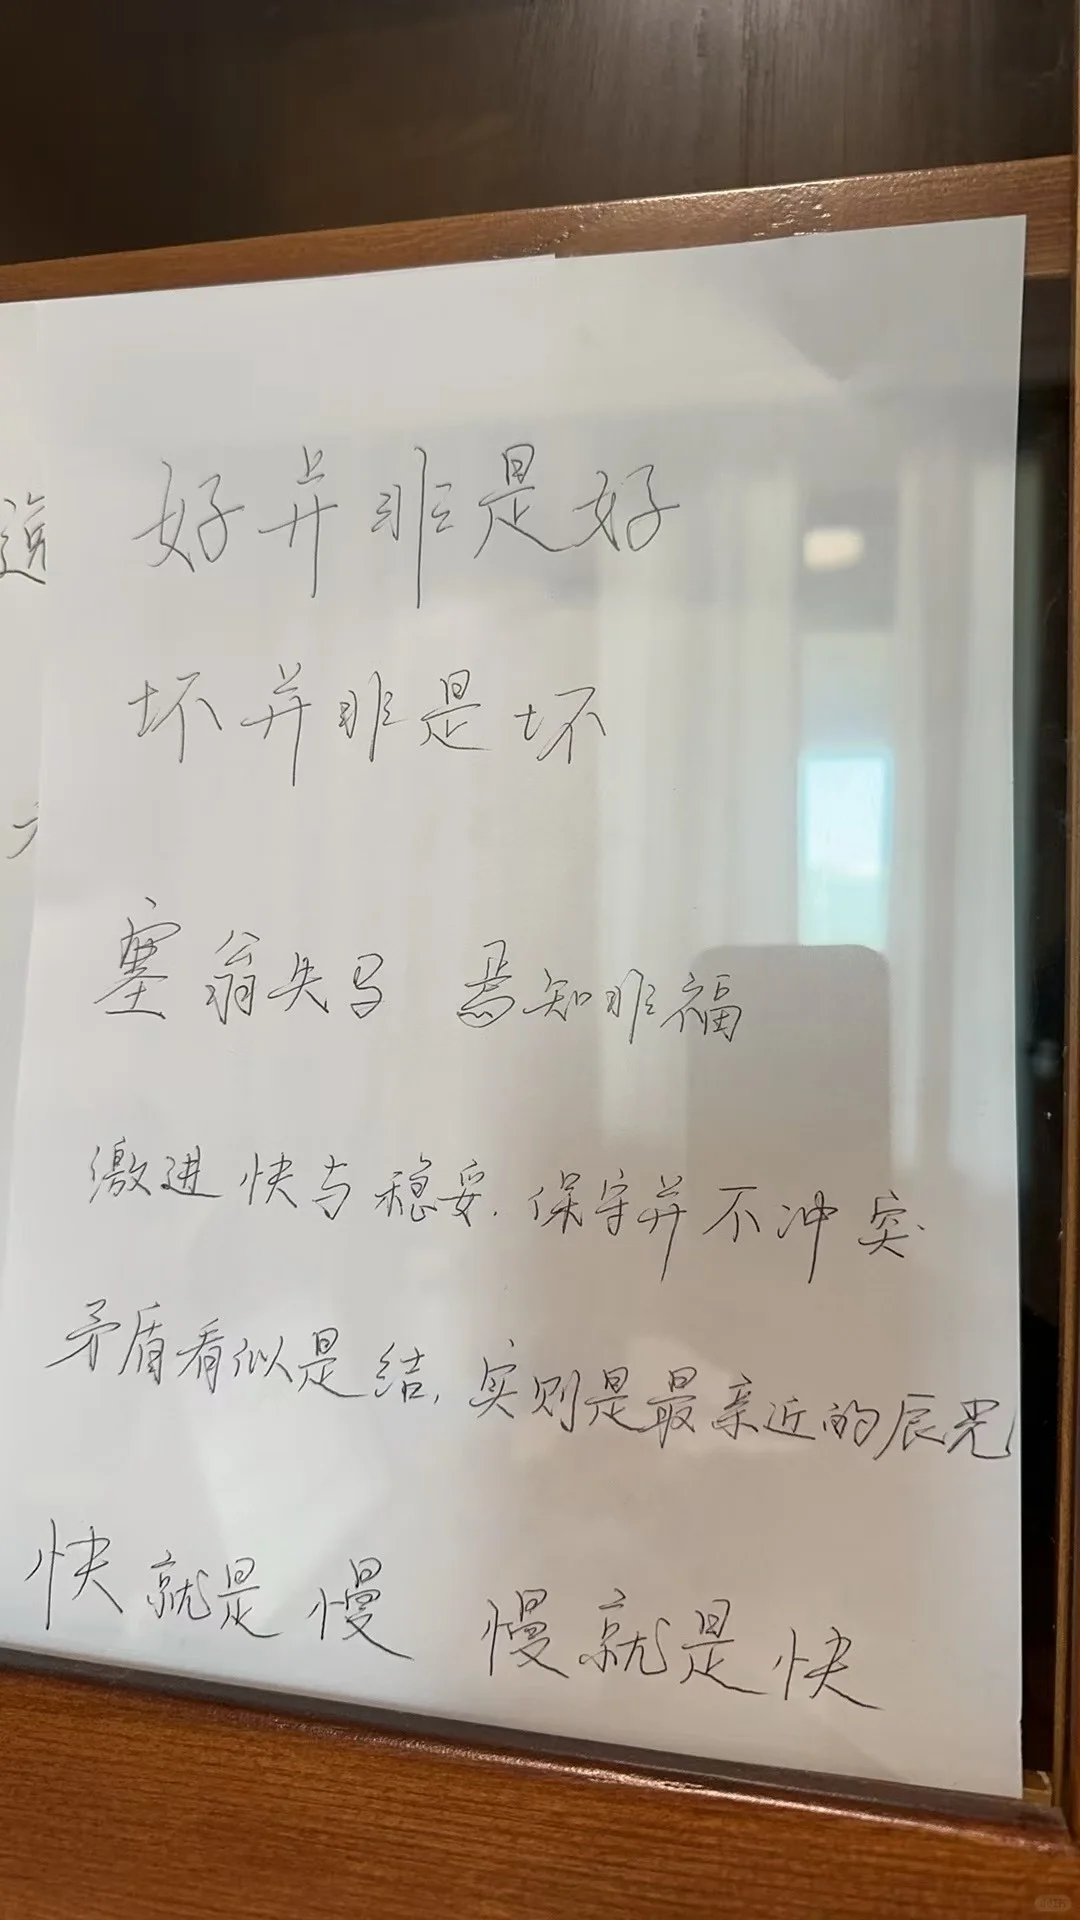 好并非是好
坏并非是坏
塞翁失马 焉知非福
激进 快与稳妥.保守并不冲突
矛盾看似是结,实则是最亲近的辰光
快就是慢 慢就是快